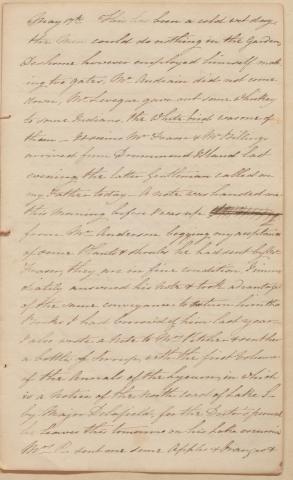 May 17th This has been a cold wet day
the Men could do nothing in the Garden
Deschome however employed himself mak-
ing two gates, Mr Audrain did not come
down, Mr Levegue gave out some Whiskey
to some Indians, the White bird was one of
them — Messrs Mr Frazer & Mr Gillings
arrived from Drummond Island last
evening the latter Gentleman called on
my Father today — A note was handed me
this Morning before I was up
from Mr Anderson begging my acceptance
of some Plants & shrubs he had sent by Mr
Frazer, they are in fine condition. I imme
diately answered his Note & took advantage
of the same conveyance to return him the
Books I had borrowed of him last year —
I also wrote a Note to Mrs Pitcher & sent her
a bottle of Syrup, with the first Volume
of the Annals of the Lyceum, in which
is a notice of the North cord of Lake S—
by Major Delafield, for the Doctor's perusal
he leaves this tomorrow on his Lake excursion
Mrs P. sent me some Apples & Oranges &